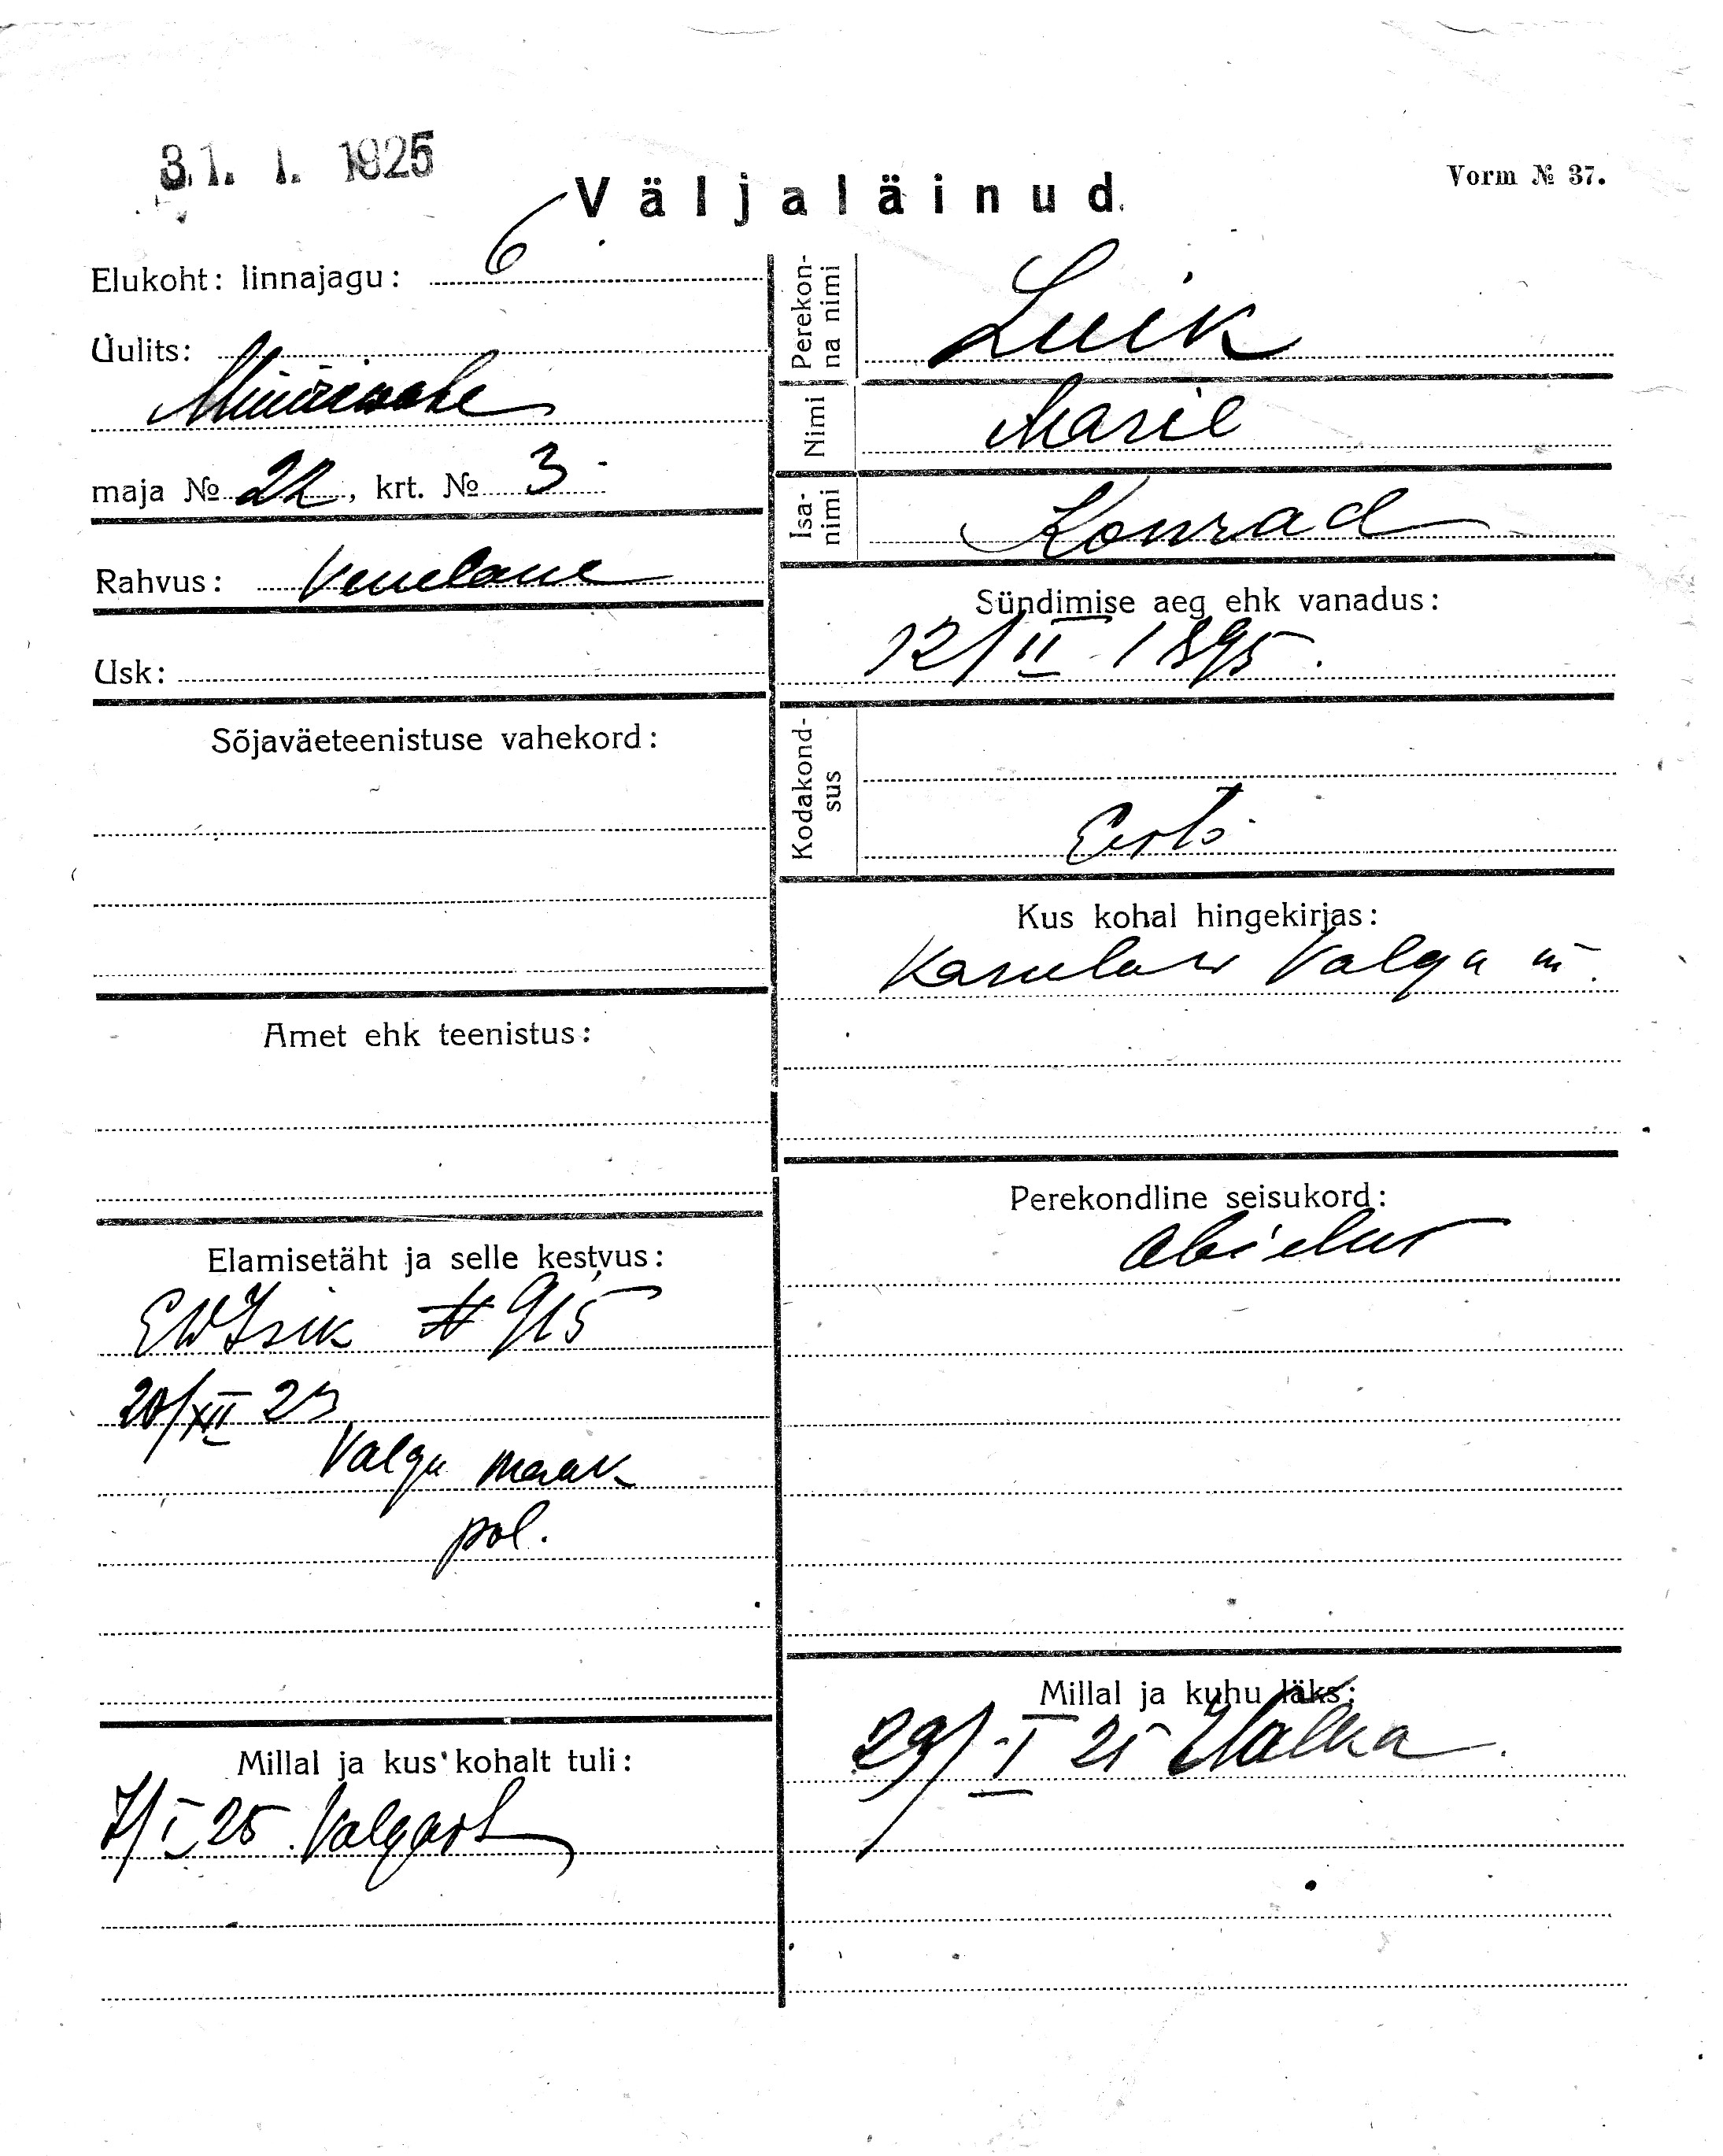 31. I. 1925
Väljaläinud.
Vorm № 37.
Elukoht: linnajagu: 6
Uulits:
Müürivahe
maja № 22, krt. № 3
Rahvus: Venelane
Usk:
Sõjaväeteenistuse vahekord:
Amet ehk teenistus:
Elamisetäht ja selle kestvus:
EW Isik № 915
20/XII 23
Valga maak
pol.
Millal ja kus kohalt tuli:
7/I 25. Valgast
Perekon-
na nimi
Luik
Nimi
Marie
Isa-
nimi
Konrad
Sündimise aeg ehk vanadus:
12/II 1895.
Kodakond-
sus
Eesti
Kus kohal hingekirjas:
Karula v Valga m.
Perekondline seisukord:
abielus
Millal ja kuhu läks:
29/I 25 Valka.